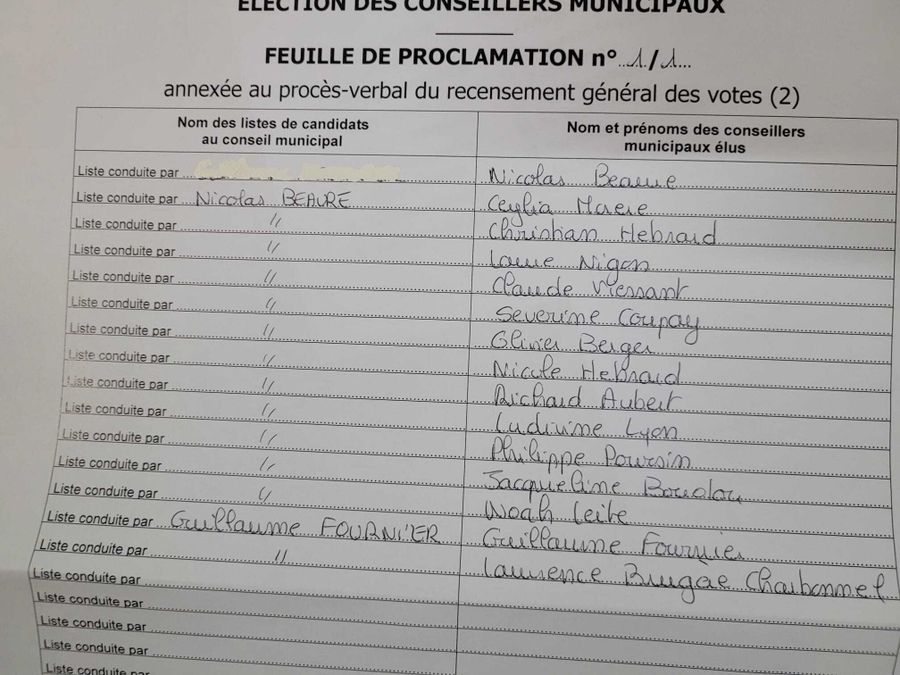 ÉLECTION DES CONSEILLERS MUNICIPAUX
FEUILLE DE PROCLAMATION n° 1/1
annexée au procès-verbal du recensement général des votes (2)
Nom des listes de candidats
au conseil municipal
Nom et prénoms des conseillers
municipaux élus
Liste conduite par Nicolas Beaure
Liste conduite par Nicolas BEAURE
Liste conduite par // Christian Hebrard
Liste conduite par // Nigon
Liste conduite par // Claude
Liste conduite par // Severine Coupay
Liste conduite par // Olivier Berger
Liste conduite par // Nicole Hebrard
Liste conduite par // Richard Aubert
Liste conduite par // Ludivine Lyon
Liste conduite par // Philippe Poursin
Liste conduite par // Jacqueline
Liste conduite par // Noah Leite
Liste conduite par Guillaume FOURNIER Guillaume Fournier
Liste conduite par // Laurence Brugere Charbonnel
Liste conduite par
Liste conduite par
Liste conduite par
Liste conduite par
Liste conduite par